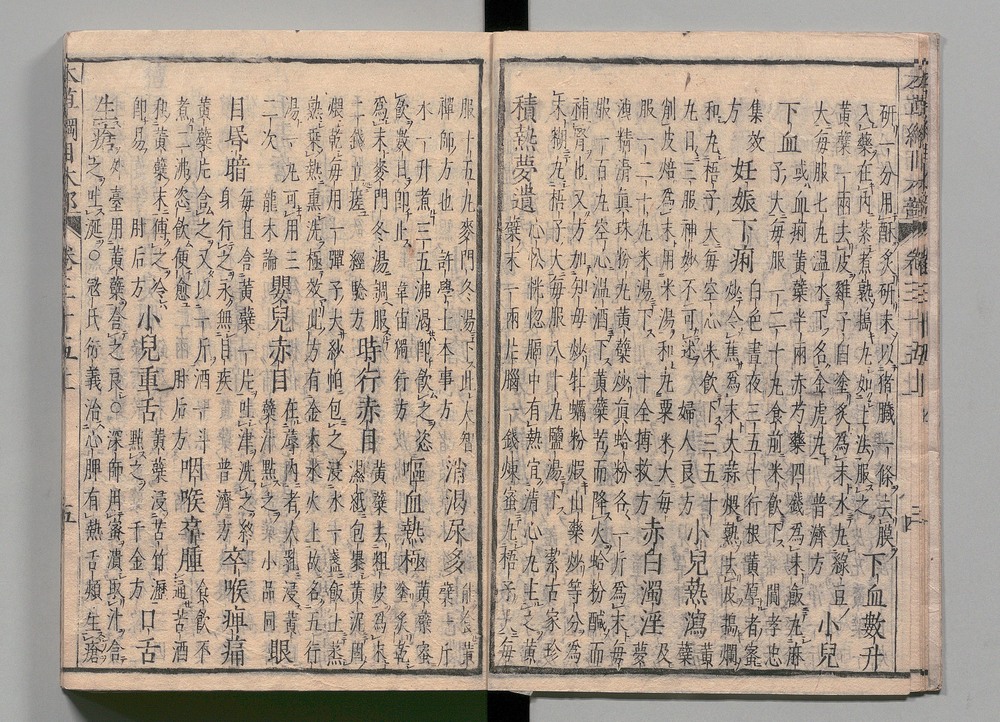 研一分用酥炙研末以猪臓一條去膜
入藥在內札煮熟搗丸如上法服之
下血數升
黃蘗一兩去皮雞子白塗炙爲末水丸綠豆
大每服七丸温水下名金虎丸普濟方
小兒
下血
或血痢黃蘗半兩赤芍藥四錢爲末飯丸麻
子大每服一二十丸食前米飲下閻孝忠
集效
方
妊娠下痢
白色晝夜三五十行根黃厚者蜜
炒令焦爲末大蒜煨熟去皮搗爛
和丸梧子大每空心米飲下三五十
丸日三服神妙不可述婦人良方
小兒熱瀉
黃
蘗
削皮焙爲末用米湯和丸粟米大每
服一二十丸米湯下十全博救方
赤白濁淫
及
夢
洩精滑眞珠粉丸黃蘗炒眞蛤粉各一斤爲末每
服一百丸空心温酒下黃蘗苦而降火蛤粉鹹而
補腎也又方加知母炒牡蠣粉煆山藥炒等分爲
末糊丸梧子大每服八十丸鹽湯下潔古家珍
積熱夢遺
心忪恍惚膈中有熱宜清心丸主之黃
蘗末一兩片腦一錢煉蜜丸梧子大每
服十五丸麥門冬湯下此大智
禪師方也許學士本事方
消渴尿多
能食黃
蘗一斤
水一升煮三五沸渴卽飲之恣
飲數日卽止韋宙獨行方
嘔血熱極
黃蘗蜜
塗炙乾
爲末麥門冬湯調服
二錢立瘥經驗方
時行赤目
黃蘗去粗皮爲末
濕紙包裹黃泥固
煨乾每用一彈子大紗帕包之浸水一盞飯上蒸
熟乗熱熏洗極效此方有金木水火土故名五行
湯一丸可用三
二次龍木論
嬰兒赤目
在蓐內者人乳浸黃
蘗汁點之小品同
眼
目昏暗
每旦含黃蘗一片吐津洗之終
身行之永無目疾普濟方
卒喉痺痛
黃蘗片含之又以一斤酒一斗
煮二沸恣飲便愈肘后方
咽喉卒腫
食飲不
通苦酒
和黃蘗末傅之冷
卽易肘后方
小兒重舌
黃蘗浸苦竹瀝
點之千金方
口舌
生瘡
外臺用黃蘗含之良〇深師用蜜漬取汁含
之吐涎〇寇氏衍義治心脾有熱舌頰生瘡